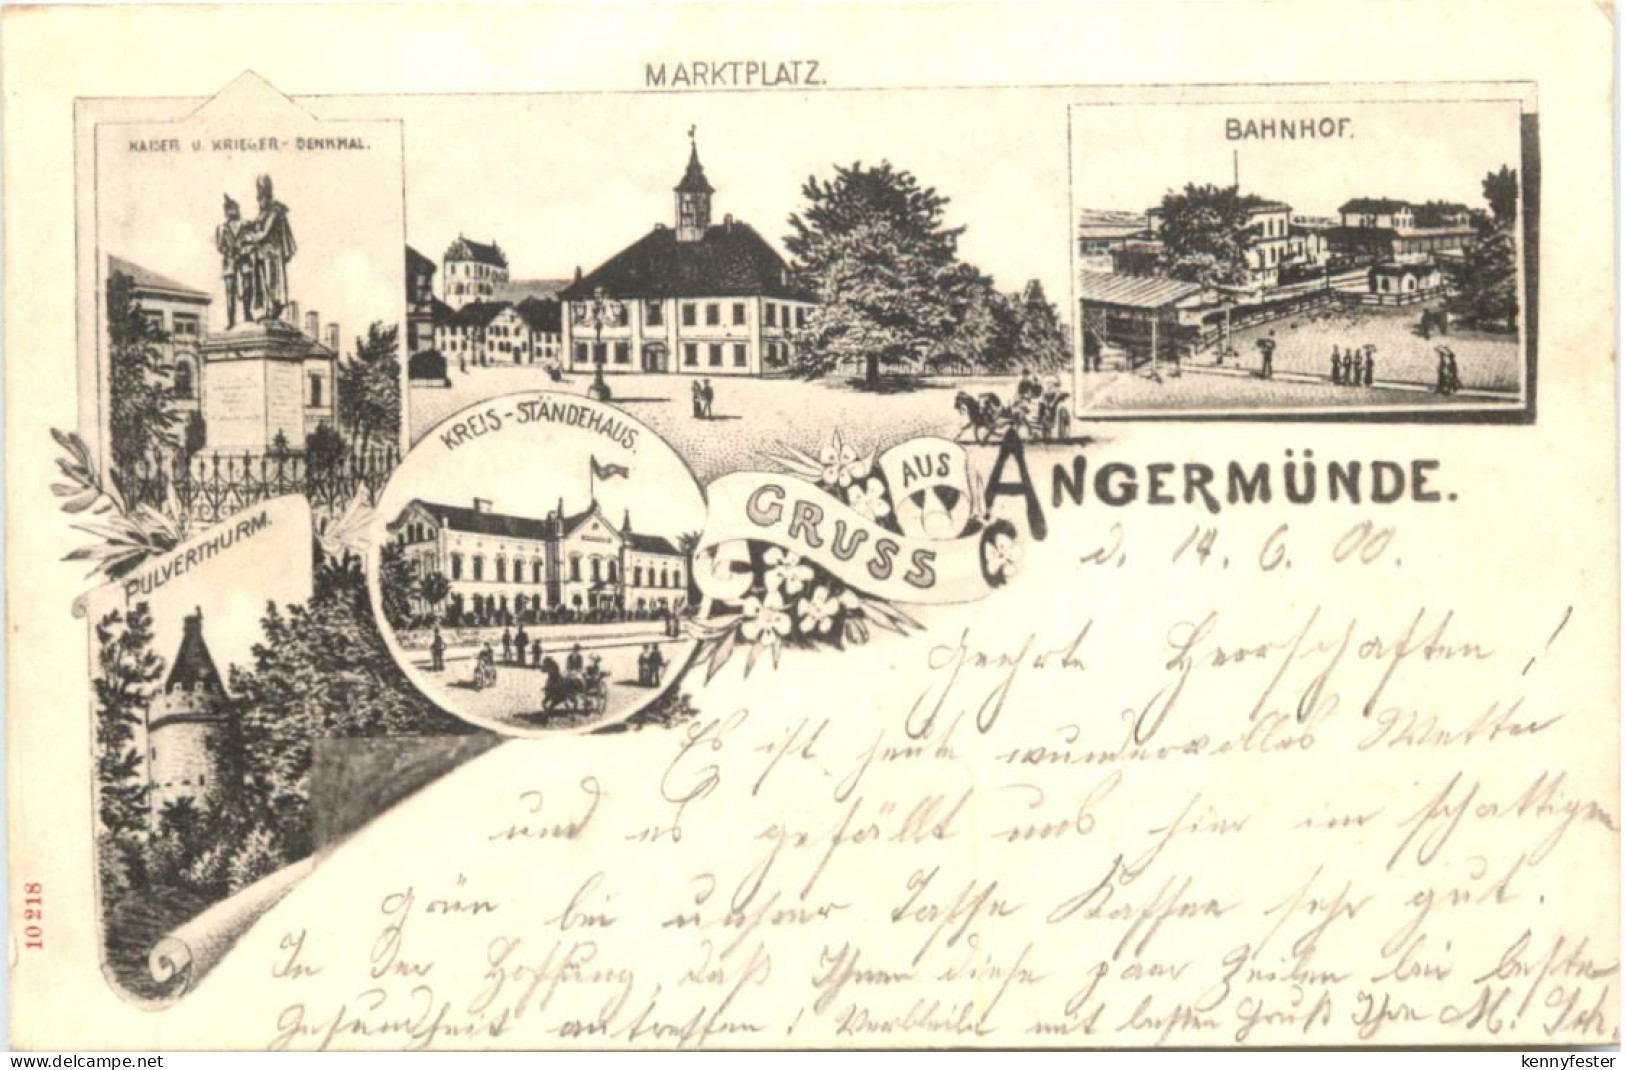 MARKTPLATZ.
KAISER U. KRIEGER-DENKMAL.
BAHNHOF.
KREIS-STÄNDEHAUS.
GRUSS AUS ANGERMÜNDE.
PULVERTHURM.
d. 14. 6. 00.
Geehrte Herrschaften!
Es ist heute wundervolles Wetter
und es gefällt uns hier im schattigen
Grün bei unserer Tasse Kaffee sehr gut.
In der Hoffnung, daß Ihnen diese paar Zeilen bei bester
Gesundheit antreffen! Verbleibe mit besten Gruß Ihre M.
10218
delcampe.net
kennyfester